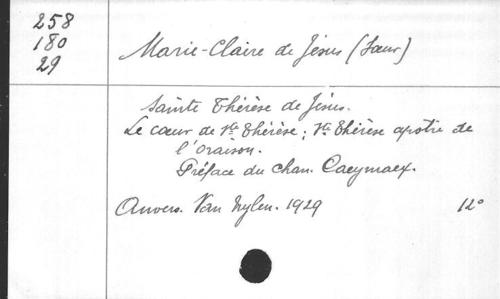 258
180
29
Marie-Claire de Jésus (Soeur)
Sainte Thérèse de Jésus.
Le cœur de Ste Thérèse; Ste Thérèse apôtre de
l'oraison.
Préface du chan. Caeymaex.
Anvers. Van Nylen. 1929 12°